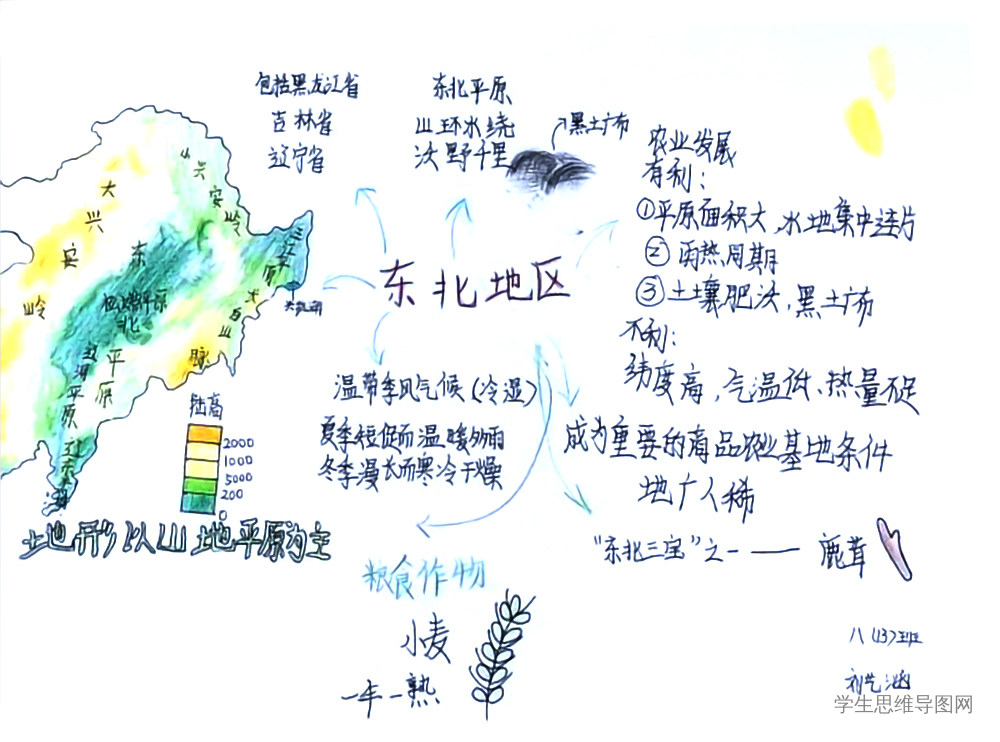 包括黑龙江省
吉林省
辽宁省
东北平原
山环水绕
沃野千里
黑土广布
农业发展
有利:
①平原面积大,水地集中连片
② 雨热同期
③土壤肥沃,黑土广布
不利:
纬度高,气温低、热量不足
成为重要的商品农业基地条件
地广人稀
"东北三宝"之一——鹿茸
东北地区
温带季风气候(冷湿)
夏季短促而温暖多雨
冬季漫长而寒冷干燥
粮食作物
小麦
一年一熟
小兴安岭
大兴安岭
三江平原
东北
平原
长白山脉
辽河平原
陆高
2000
1000
5000
200
0
土地形以山地平原为主
八(13)班
学生思维导图网